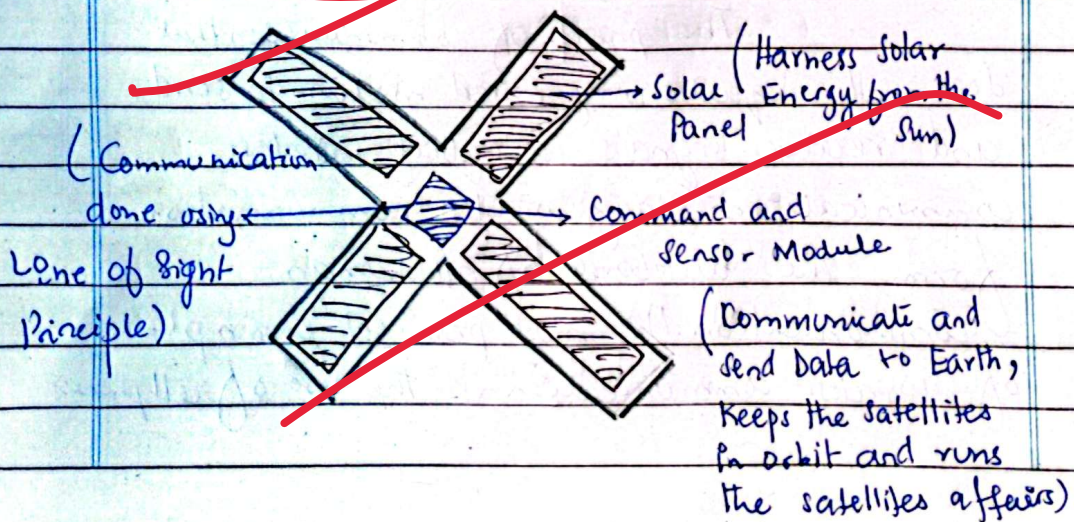 Solar Panel
(Harness Solar
Energy from the
Sun)
(Communication
done using
Line of Sight
Principle)
Command and
Sensor Module
(Communicate and
send Data to Earth,
Keeps the satellites
in orbit and runs
the satellites affairs)